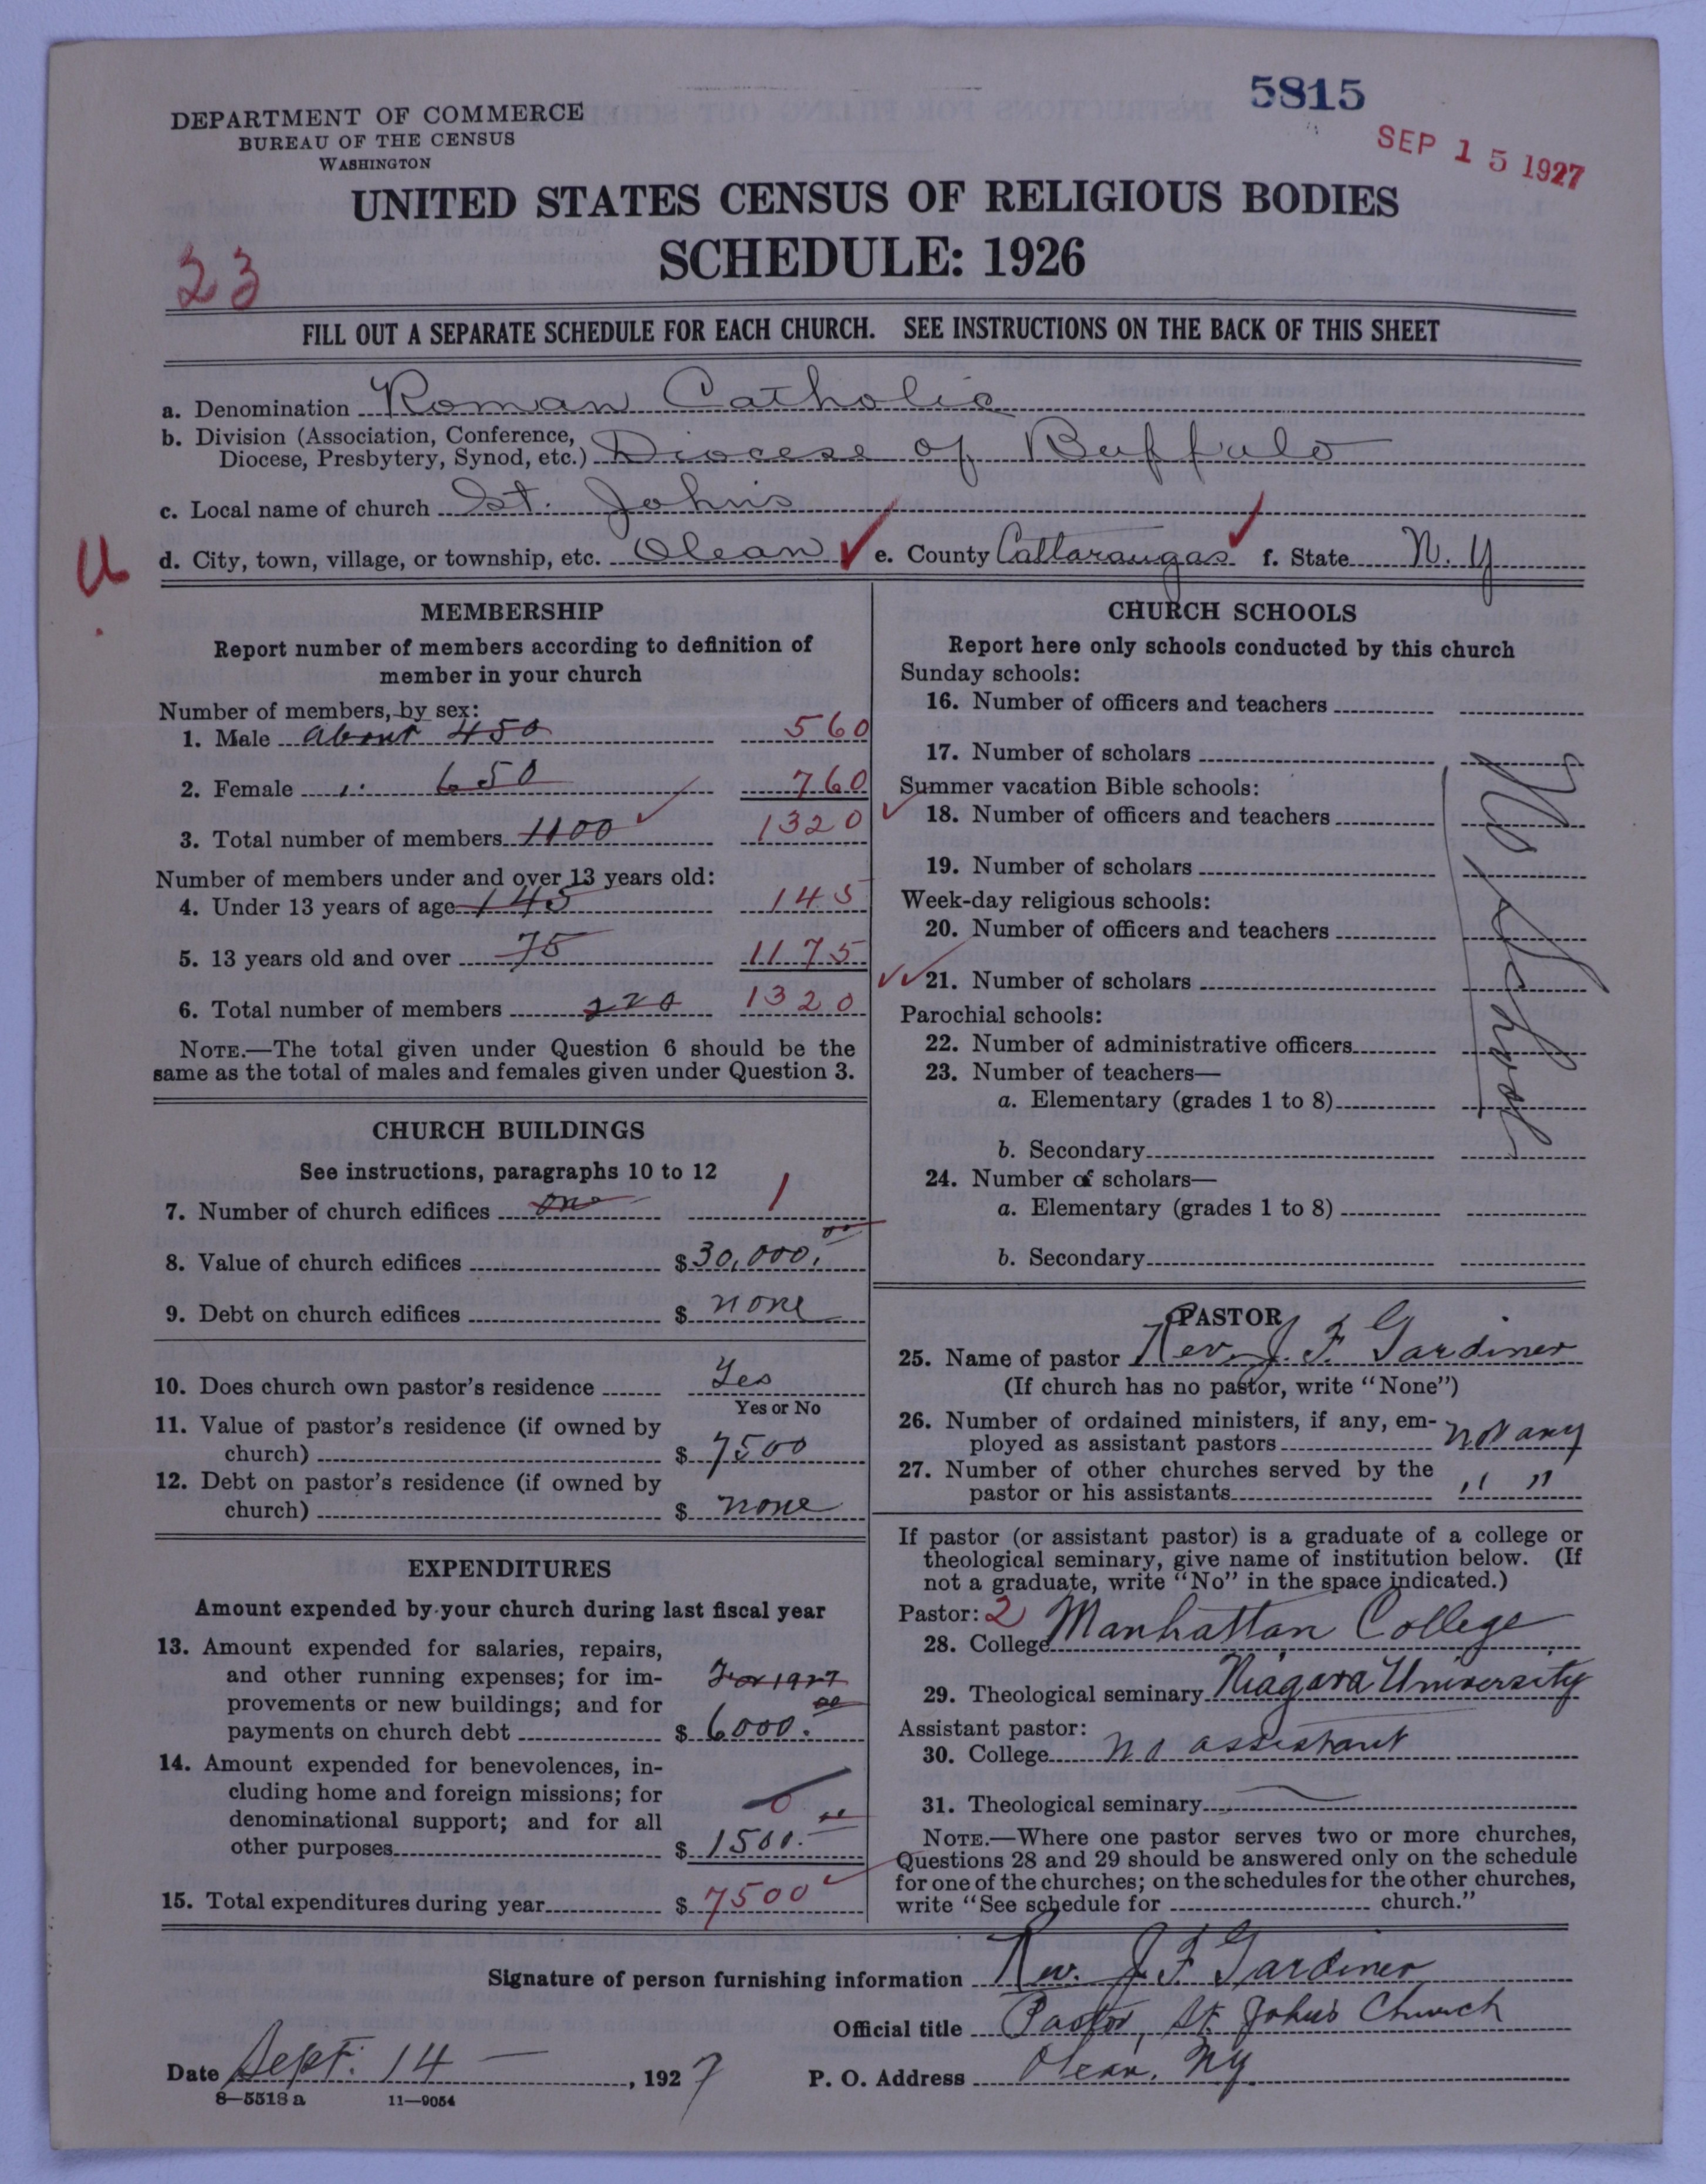 5815
SEP 15 1927
DEPARTMENT OF COMMERCE
BUREAU OF THE CENSUS
WASHINGTON
UNITED STATES CENSUS OF RELIGIOUS BODIES
SCHEDULE: 1926
23
FILL OUT A SEPARATE SCHEDULE FOR EACH CHURCH. SEE INSTRUCTIONS ON THE BACK OF THIS SHEET
a. Denomination Roman Catholic
b. Division (Association, Conference,
Diocese, Presbytery, Synod, etc.) Diocese of Buffalo
c. Local name of church St. John's
U.
d. City, town, village, or township, etc. Olean e. County Cattaraugas f. State N. Y
MEMBERSHIP
Report number of members according to definition of
member in your church
Number of members, by sex:
1. Male about 450 560
2. Female " 650 760
3. Total number of members 1100 1320
Number of members under and over 13 years old:
4. Under 13 years of age 145 145
5. 13 years old and over 75 1175
6. Total number of members 220 1320
NOTE.—The total given under Question 6 should be the
same as the total of males and females given under Question 3.
CHURCH BUILDINGS
See instructions, paragraphs 10 to 12
7. Number of church edifices one 1
8. Value of church edifices $ 30,000.00
9. Debt on church edifices $ none
10. Does church own pastor's residence Yes
Yes or No
11. Value of pastor's residence (if owned by
church) $ 7500
12. Debt on pastor's residence (if owned by
church) $ none
EXPENDITURES
Amount expended by your church during last fiscal year
13. Amount expended for salaries, repairs,
and other running expenses; for im- For 1927
provements or new buildings; and for
payments on church debt $ 6000.00
14. Amount expended for benevolences, in-
cluding home and foreign missions; for
denominational support; and for all 0
other purposes $ 1500.00
15. Total expenditures during year $ 7500
CHURCH SCHOOLS
Report here only schools conducted by this church
Sunday schools:
16. Number of officers and teachers
17. Number of scholars
Summer vacation Bible schools:
18. Number of officers and teachers
19. Number of scholars
Week-day religious schools:
20. Number of officers and teachers
21. Number of scholars
Parochial schools:
22. Number of administrative officers
23. Number of teachers—
a. Elementary (grades 1 to 8)
b. Secondary
24. Number of scholars—
a. Elementary (grades 1 to 8)
b. Secondary
No School
PASTOR
25. Name of pastor Rev. J. F. Gardiner
(If church has no pastor, write "None")
26. Number of ordained ministers, if any, em-
ployed as assistant pastors not any
27. Number of other churches served by the
pastor or his assistants " "
If pastor (or assistant pastor) is a graduate of a college or
theological seminary, give name of institution below. (If
not a graduate, write "No" in the space indicated.)
Pastor: 2
28. College Manhattan College
29. Theological seminary Niagara University
Assistant pastor:
30. College no assistant
31. Theological seminary
NOTE.—Where one pastor serves two or more churches,
Questions 28 and 29 should be answered only on the schedule
for one of the churches; on the schedules for the other churches,
write "See schedule for church."
Signature of person furnishing information Rev. J. F. Gardiner
Official title Pastor, St. John's Church
Date Sept. 14 —, 1927 P. O. Address Olean, NY
8—5518 a 11—9054